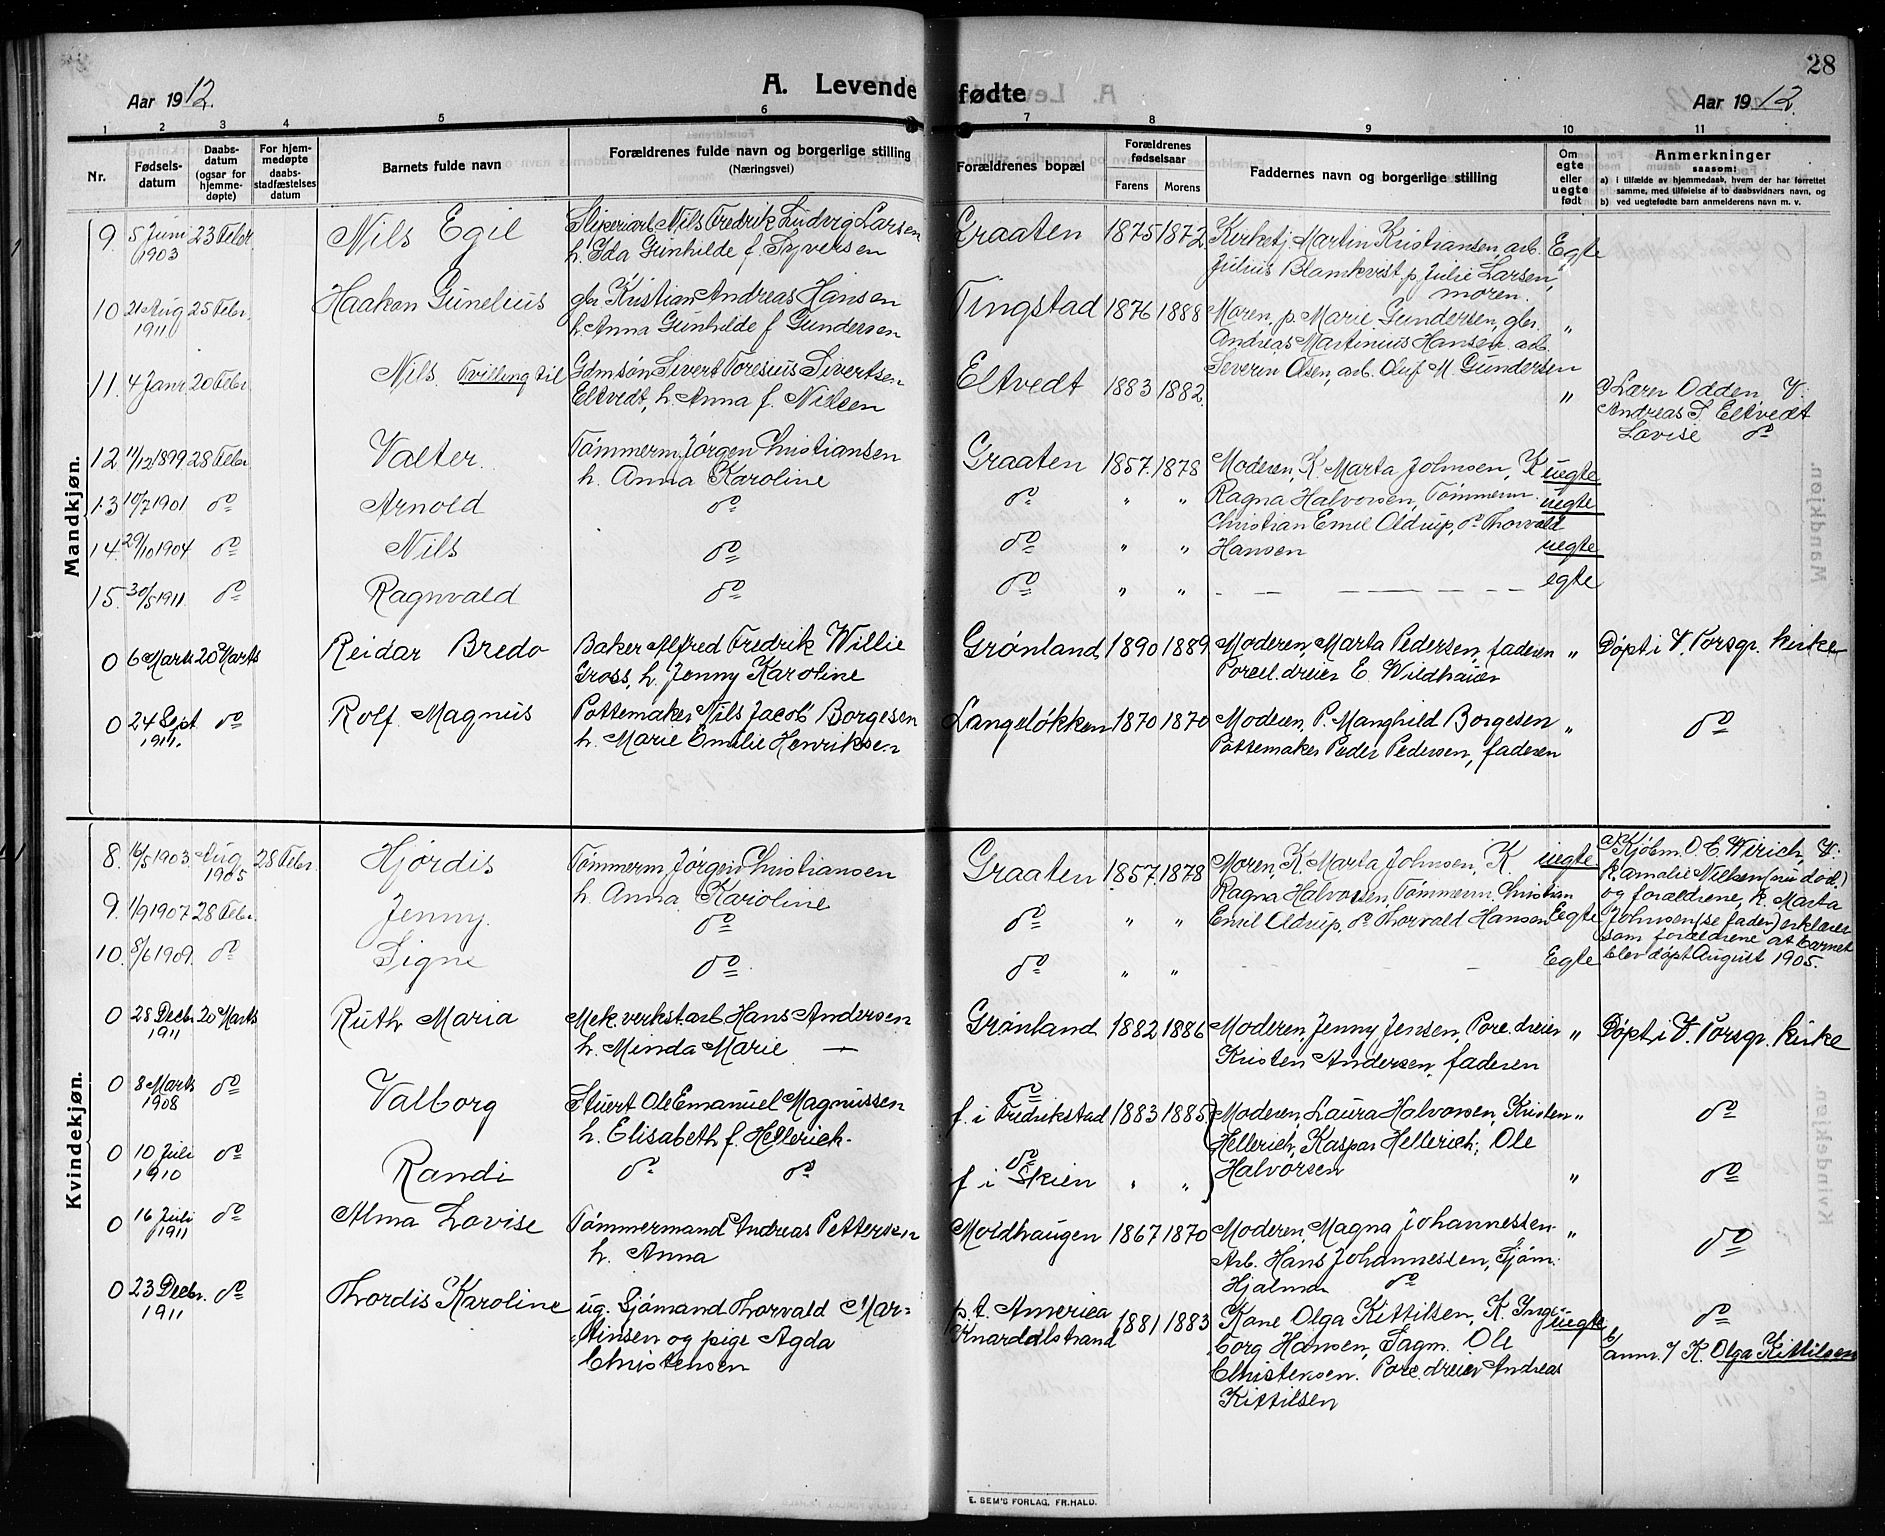 28
Aar 1912.
A. Levende fødte
Aar 1912.
1 2 3 4 5 6 7 8 9 10 11
Nr.
Fødselsdatum
Daabsdatum (ogsar for hjemmedøpte)
For hjemmedøpte daabsstadfæstelses datum
Barnets fulde navn
Forældrenes fulde navn og borgerlige stilling (Næringsvei)
Forældrenes bopæl
Forældrenes fødselsaar
Farens
Morens
Faddernes navn og borgerlige stilling
Om egte eller uegte født
Anmerkninger
saasom:
a) i tilfælde av hjemmedaab, hvem der har forrettet samme, med tilføielse af to daabsvidners navn, og
b) ved uegtefødte barn anmelderens navn m. v.
Mandkjøn.
9 5 Juni 1903 23 Febr Nils Egil
Sliperiarb Nils Fredrik Ludvig Larsen
h. Ida Gunhilde f. Tryversen
Graaten 1875 1872
Kirketj. Martin Kristiansen, arb.
Julius Blomkvist, p. Julie Larsen,
moren.
Egte
10 21 Aug 1911 25 Febr. Haakon Gunelius
gbr Kristian Andreas Hansen
h. Anna Gunhilde f Gundersen
Tingstad 1876 1888
Moren, p. Marie Gundersen, gbr.
Andreas Martinius Hansen, arb.
Severin Olsen, arb. Oluf M. Gundersen
"
11. 4 Janr. 20 Febr Nils. Tvilling til
Gdmsøn Sivert Toresius Sivertsen
Eltvedt, h. Anna f. Nilsen
Eltvedt 1883 1882.
"
a) Laren Odden, V:
Andreas S. Eltvedt
Lovise do
12 11/12 1899 28 Febr Valter.
Tømmerm. Jørgen Christiansen
h. Anna Karoline
Graaten 1857. 1878
Moderen, K. Marta Johnsen, K
Ragna Halvorsen, Tømmerm.
Christian Emil Oldrup, do Thorvald
Hansen
uegte
13 10/7 1901 do Arnold do do " " uegte
14. 29/10 1904 do Nils do do " " uegte
15. 30/5 1911. do Ragnvald do do " " - - - egte
0 6 Marts 20 Marts Reidar Bredo
Baker Alfred Fredrik Willie
Gross, h. Jenny Karoline
Grønland 1890 1889
Moderen, Marta Pedersen, faderen
Porcel. dreier E. Wildhauer
"
Døpt i V. Porsgr. kirke
0 24 Sept 1911. do Rolf Magnus
Pottemaker Nils Jacob Borgesen
h. Marie Emilie Henriksen
Langeløkken 1870 1870
Moderen, P. Manghild Borgesen
Pottemaker Peder Pedersen, faderen
"
do
Kvindekjøn.
8. 16/5 1903 Aug 1905 28 Febr. Hjørdis
Tømmerm. Jørgen Christiansen
h. Anna Karoline
Graaten 1857. 1878
Moren, K. Marta Johnsen, K
Ragna Halvorsen, Tømmerm. Christian
Emil Oldrup, do Thorvald Hansen
uegte
a) Kjøbm. O. E. Wirich, V:
k. Amalie Nilsen (nu død)
og forældrene, k. Marta
Johnsen (se fadere) erklærer
som forældrene at barnet
blev døpt August 1905.
9. 1/9 1907 28 Febr. Jenny. do do " " Egte
10. 8/6 1909. do Signe do do " " - - Egte
0 28 Decbr 1911 20 Marts Ruth Maria
Mek. verkst. arb Hans Andersen
h. Minda Marie —
Grønland 1882 1886
Moderen, Jenny Jensen, Porc. dreier
Kristen Andersen, faderen
"
Døpt i V. Porsgr. kirke
0 8 Marts 1908 do Valborg
Stuert Ole Emanuel Magnussen
h. Elisabeth f. Hellerich.
do
f. i Fredrikstad 1883 1885
Moderen, Laura Halvorsen, Kristen
Hellerich, Kaspar Hellerich, Ole
Halvorsen
"
do
0 10 Juli 1910 do Randi do do
do
f i Skien " " "
do
0 16 Juli 1911 do Alma Lovise
Tømmermand Andreas Pettersen
h. Anna
Moldhaugen 1867 1870
Moderen, Magna Johannessen
Arb. Hans Johannessen, Sjøm.
Hjalmar do
"
do
0 23 Decbr. 1911 do Thordis Karoline
ug. Sjømand Thorvald Mar-
tinsen og pige Agda
Christensen
p. t. America
Knardalstrand 1881 1883
Kone Olga Kittilsen, K. Inge-
borg Hansen, Sagm. Ole
Christensen. Porc. dreier Andreas
Kittilsen
uegte
do
b/ anm. / K. Olga Kittilsen
E. SEM'S FORLAG, FR.HALD.